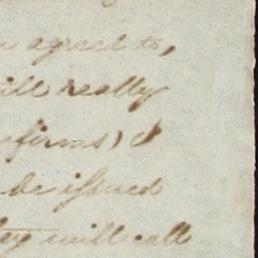 agreed to,
will really
firms) &
be issued
they will call